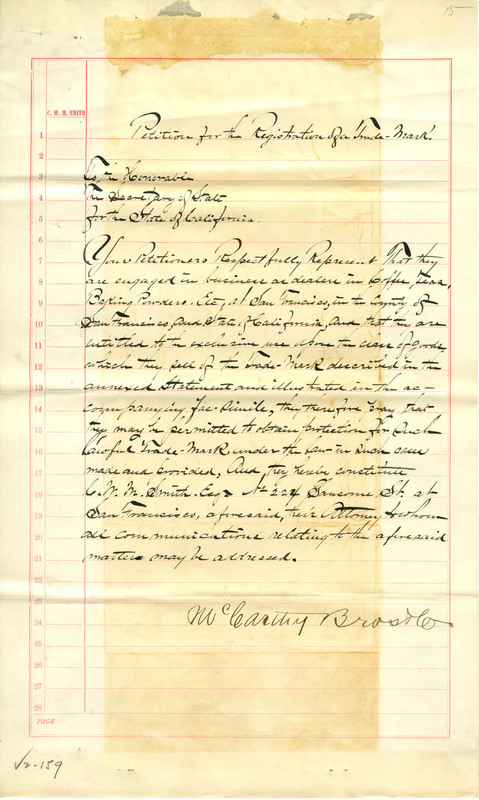 15
C. W. M. SMITH
Petition for the Registration of a Trade-Mark.
To the Honorable
The Secretary of State
for the State of California.
Your Petitioners Respectfully Represent That they
are engaged in business as dealers in Coffee, Teas,
Baking Powders, Etc, at San Francisco, in the County of
San Francisco, and State of California, and that they are
entitled to the exclusive use upon the class of goods,
which they sell of the Trade-Mark described in the
annexed statement and illustrated in the ac-
companying fac-simile, they therefore pray that
they may be permitted to obtain protection for such
lawful Trade-Mark under the law in such case
made and provided, And they hereby constitute
C. W. M. Smith. Esq. No 224 Sansome St. at
San Francisco, aforesaid, their Attorney to whom
all communications relating to the aforesaid
matter may be addressed.
McCarthy Bros & Co
1
2
3
4
5
6
7
8
9
10
11
12
13
14
15
16
17
18
19
20
21
22
23
24
25
26
27
28
PAGE
V2-159